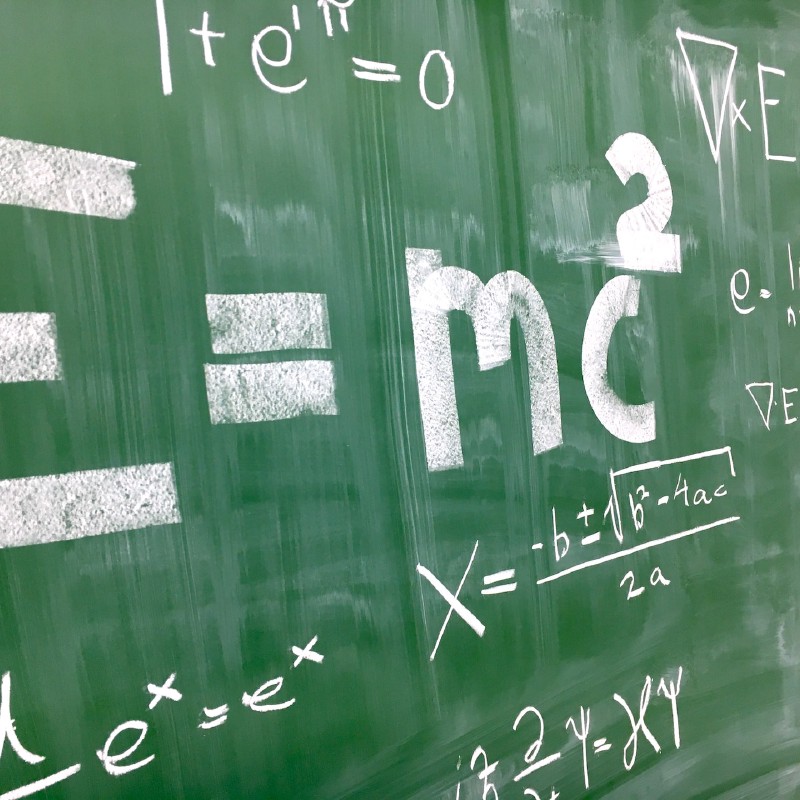 1 + e^iπ = 0
∇×E
E = mc²
e =
∇·E
x = (-b ± √(b² - 4ac)) / 2a
e^x = e^x
iħ ∂ψ = ℋψ